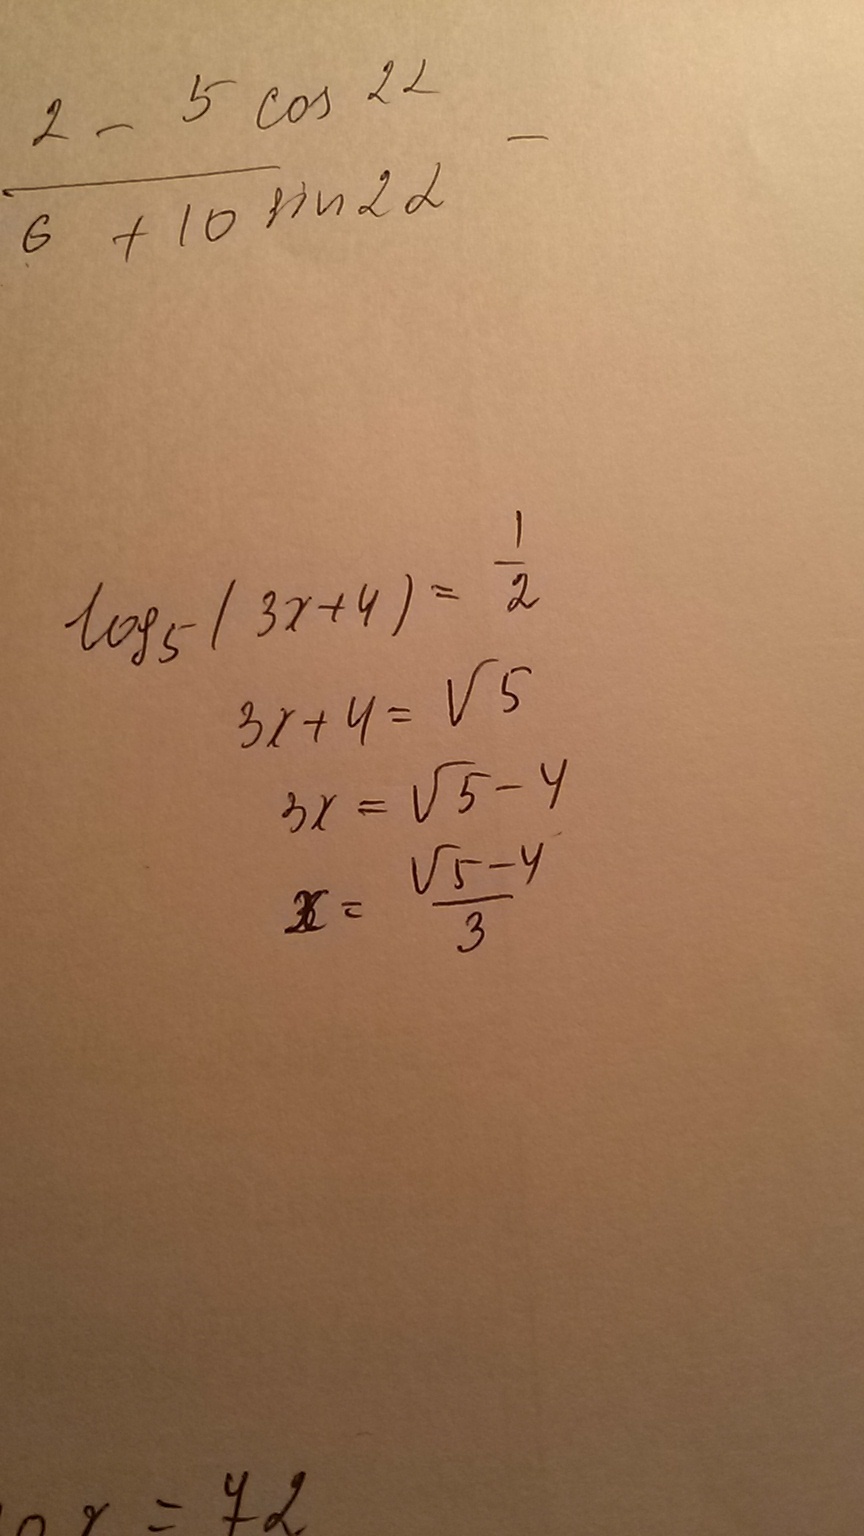 2 - 5 cos 2α
6 + 10 sin 2α
-
log₅(3x+4) = 1/2
3x+4 = √5
3x = √5-4
x = (√5-4)/3
x = 72